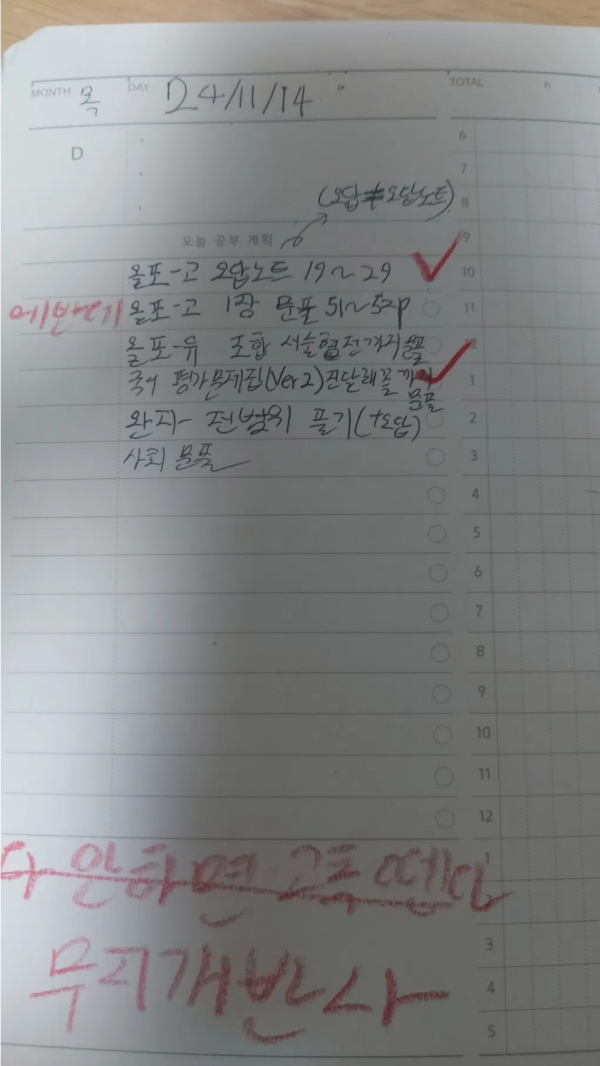 MONTH 목 DAY 24/11/14 TOTAL h
D
(오답≠오답노트)
오늘 공부 계획
올포-고 오답노트 19~29
올포-고 1장 문포 51~52p
올포-유 조합 서술형전개귀 문풀
국어 평가문제집(Ver2)진달래꽃 까지
문풀
완자- 전범위 풀기(+오답)
사회 문풀
6
7
8
9
10
11
12
1
2
3
4
5
6
7
8
9
10
11
12
1
3
4
5
다 안하면 고투 뗀다
무지개반사